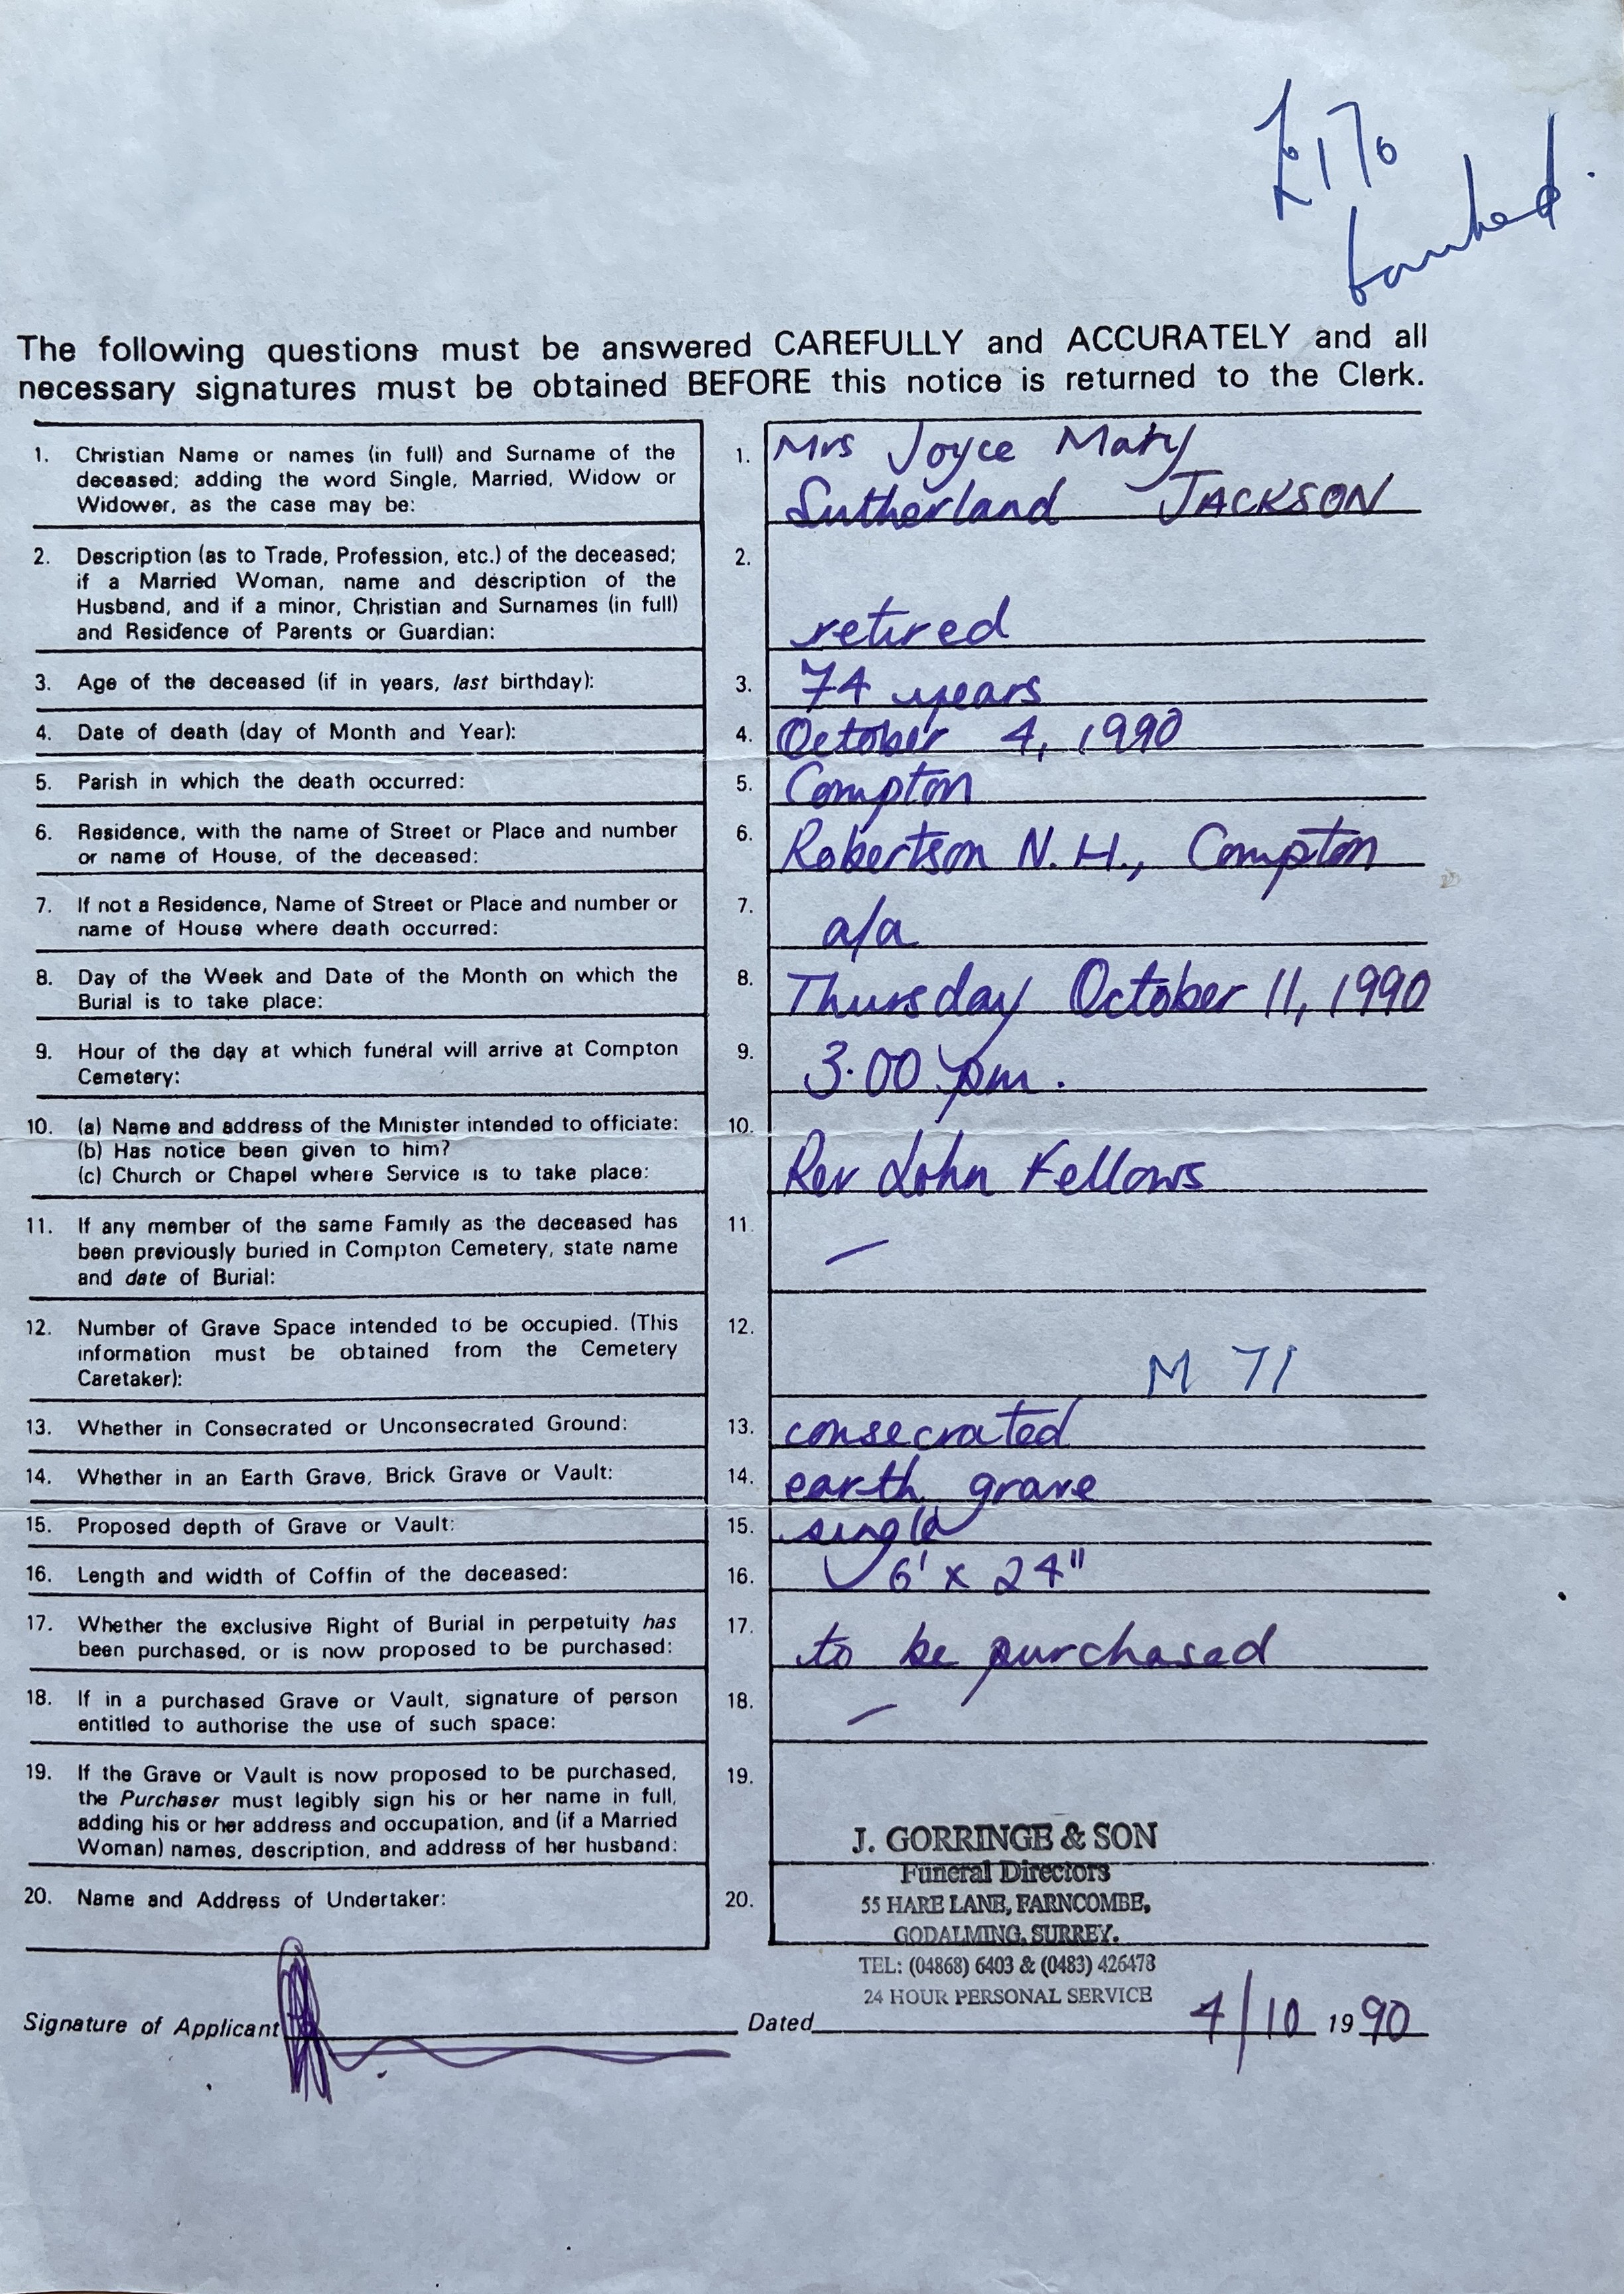 £170
banked.
The following questions must be answered CAREFULLY and ACCURATELY and all
necessary signatures must be obtained BEFORE this notice is returned to the Clerk.
1. Christian Name or names (in full) and Surname of the
deceased; adding the word Single, Married, Widow or
Widower, as the case may be:
1. Mrs Joyce Mary
Sutherland JACKSON
2. Description (as to Trade, Profession, etc.) of the deceased;
if a Married Woman, name and description of the
Husband, and if a minor, Christian and Surnames (in full)
and Residence of Parents or Guardian:
2. retired
3. Age of the deceased (if in years, last birthday):
3. 74 years
4. Date of death (day of Month and Year):
4. October 4, 1990
5. Parish in which the death occurred:
5. Compton
6. Residence, with the name of Street or Place and number
or name of House, of the deceased:
6. Robertson N.H., Compton
7. If not a Residence, Name of Street or Place and number or
name of House where death occurred:
7. a/a
8. Day of the Week and Date of the Month on which the
Burial is to take place:
8. Thursday October 11, 1990
9. Hour of the day at which funeral will arrive at Compton
Cemetery:
9. 3.00 pm.
10. (a) Name and address of the Minister intended to officiate:
(b) Has notice been given to him?
(c) Church or Chapel where Service is to take place:
10. Rev John Fellows
11. If any member of the same Family as the deceased has
been previously buried in Compton Cemetery, state name
and date of Burial:
11. —
12. Number of Grave Space intended to be occupied. (This
information must be obtained from the Cemetery
Caretaker):
12. M 71
13. Whether in Consecrated or Unconsecrated Ground:
13. consecrated
14. Whether in an Earth Grave, Brick Grave or Vault:
14. earth grave
15. Proposed depth of Grave or Vault:
15. single
16. Length and width of Coffin of the deceased:
16. 6' x 24"
17. Whether the exclusive Right of Burial in perpetuity has
been purchased, or is now proposed to be purchased:
17. to be purchased
18. If in a purchased Grave or Vault, signature of person
entitled to authorise the use of such space:
18. —
19. If the Grave or Vault is now proposed to be purchased,
the Purchaser must legibly sign his or her name in full,
adding his or her address and occupation, and (if a Married
Woman) names, description, and address of her husband:
19.
20. Name and Address of Undertaker:
20.
J. GORRINGE & SON
Funeral Directors
55 HARE LANE, FARNCOMBE,
GODALMING, SURREY.
TEL: (04868) 6403 & (0483) 426478
24 HOUR PERSONAL SERVICE
Signature of Applicant
Dated 4/10 1990